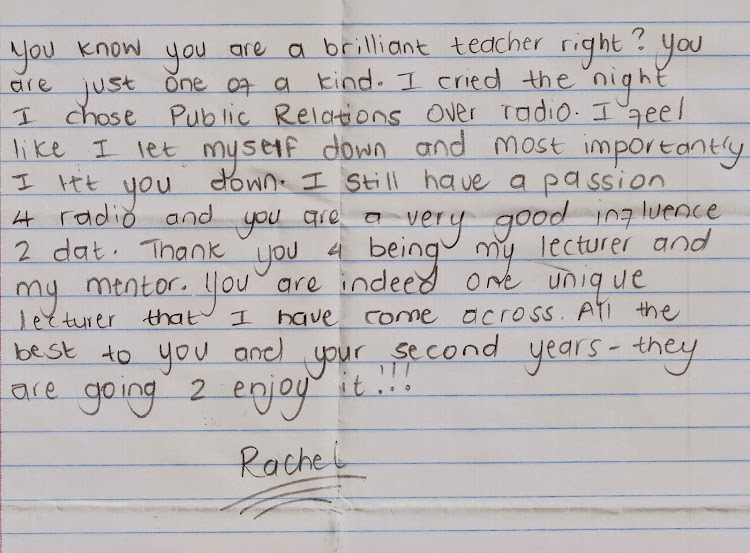 You know you are a brilliant teacher right? You
are just one of a kind. I cried the night
I chose Public Relations over radio. I feel
like I let myself down and most importantly
I let you down. I still have a passion
4 radio and you are a very good influence
2 dat. Thank you 4 being my lecturer and
my mentor. You are indeed one unique
lecturer that I have come across. All the
best to you and your second years - they
are going 2 enjoy it!!!
Rachel